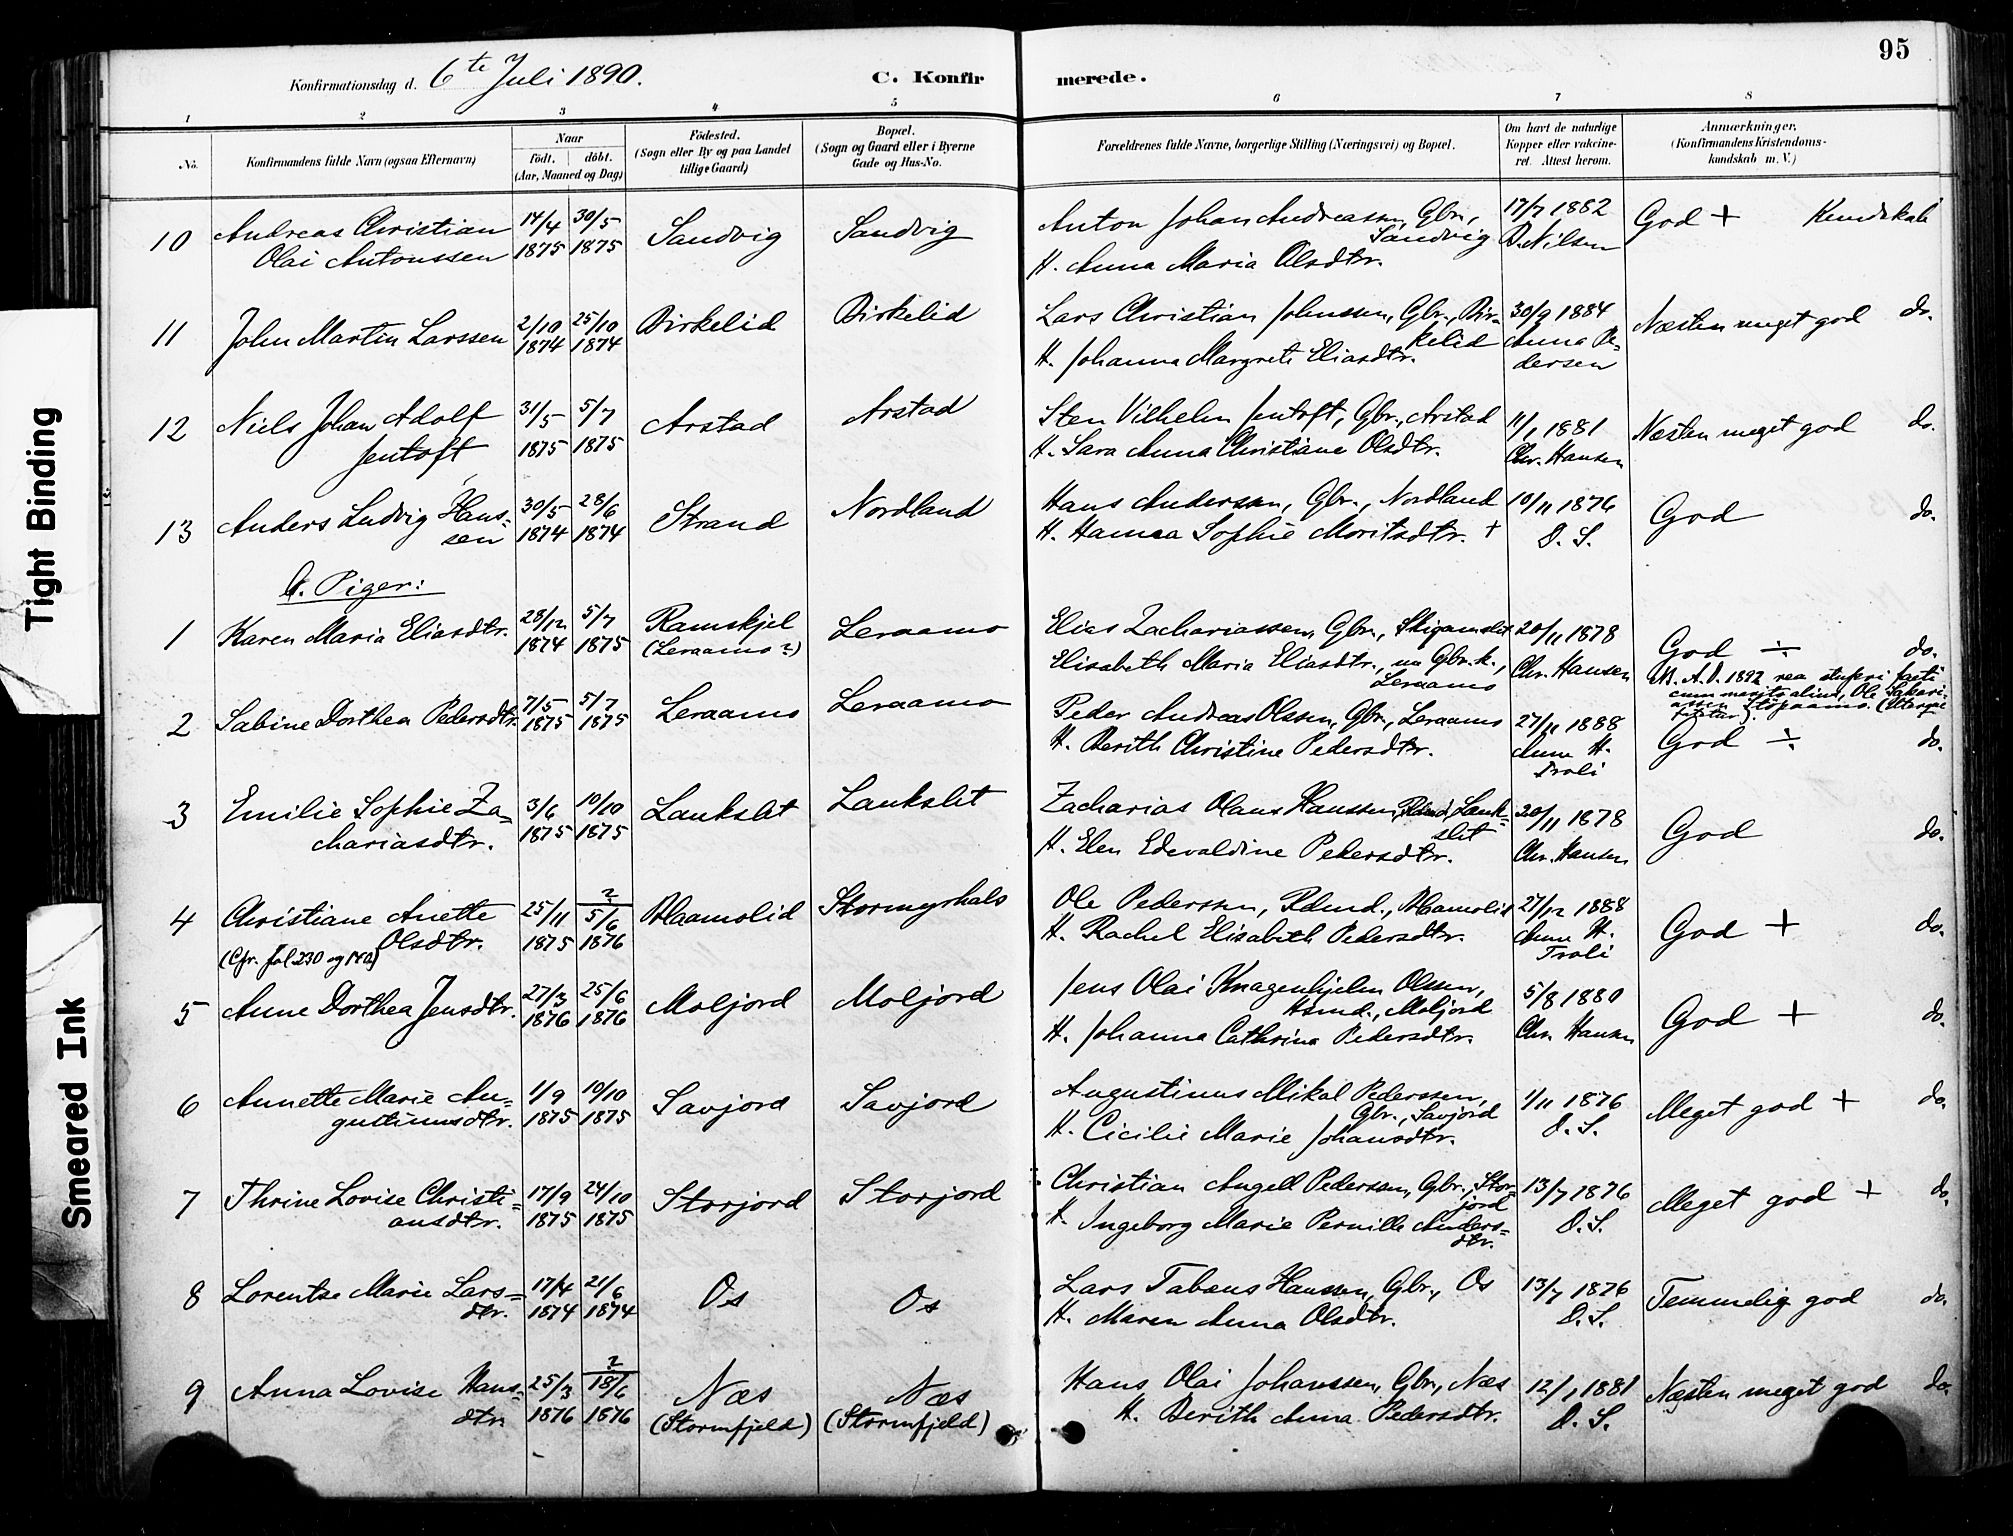 95
Konfirmationsdag d. 6te Juli 1890.
C. Konfirmerede.
1 2 3 4 5 6 7 8
No.
Konfirmandens fulde Navn (ogsaa Efternavn)
Naar
födt. döbt.
(Aar, Maaned og Dag)
Födested.
(Sogn eller By og paa Landet
tillige Gaard)
Bopæl.
(Sogn og Gaard eller i Byerne
Gade og Hus-No.
Forældrenes fulde Navne, borgerlige Stilling (Næringsvei) og Bopæl.
Om havt de naturlige
Kopper eller vaccine-
ret. Attest herom.
Anmærkninger.
(Konfirmandens Kristendoms-
kundskab m. V.)
10 Andreas Christian 14/4 30/5 Sandvig Sandvig Anton Johan Andreassen, Gbr., 17/7 1882 God + Kundskab
Olai Antonssen 1875 1875 Sandvig D. Nilsen
H. Anna Maria Olsdtr.
11 John Martin Larssen 2/10 25/10 Birkelid Birkelid Lars Christian Johnssen, Gbr., Bir- 30/9 1884 Næsten meget god do.
1874 1874 kelid Anna Pe-
H. Johanna Margrete Eliasdtr. dersen
12 Niels Johan Adolf 31/5 5/7 Arstad Arstad Sten Vilhelm Jentoft, Gbr., Arstad 11/1 1881 Næsten meget god do.
Jentoft 1875 1875 H. Sara Anna Christiane Olsdtr. Chr. Hansen
13 Anders Ludvig Hans- 30/5 28/6 Strand Nordland Hans Anderssen, Gbr., Nordland 10/11 1876 God do.
sen 1874 1874 H. Hanna Sophie Moritsdtr. + D. S.
b. Piger:
1 Karen Maria Eliasdtr. 28/12 5/7 Ramskjel Leraamo Elias Zachariassen, Gbr., 20/11 1878 God ÷ do.
1874 1875 (Leraamo?) Elisabeth Maria Eliasdtr., Gbr.k., Chr. Hansen
Leraamo
A. D. 1892 rea stupri facti
cum marito alius, Ole Sakari-
assen
2 Sabine Dorthea Pedersdtr. 7/5 5/7 Leraamo Leraamo Peder Andreas Olssen, Gbr., Leraamo 27/11 1888 God ÷ do.
1875 1875 H. Berith Christine Pedersdtr. Anne H.
Troli
3 Emilie Sophie Za- 3/6 10/10 Lankslet Lankslet Zacharias Olaus Hanssen, Lank- 20/11 1878 God do.
chariasdtr. 1875 1875 slet
H. Elen Edevaldine Pedersdtr. Chr. Hansen
4 Christiane Anette 25/11 ? 5/6 Blaamolid Stormyrhals Ole Pederssen, Rdmd., Blaamolid 27/12 1888 God + do.
Olsdtr. 1875 1876 H. Rachel Elisabeth Pedersdtr. Anne H.
(Cfr. fol 230 og 140) Troli
5 Anne Dorthea Jensdtr. 27/3 25/6 Moljord Moljord Jens Olai Knagenhjelm Olssen, 5/8 1880 God + do.
1876 1876 Hsmd., Moljord
H. Johanna Cathrina Pedersdtr. Chr. Hansen
6 Annette Marie Au- 1/9 10/10 Savjord Savjord Augustinus Mikal Pederssen, 1/11 1876 Meget god + do.
gustinusdtr. 1875 1875 Gbr., Savjord
H. Cicilie Marie Johansdtr. D. S.
7 Thrine Lovise Christi- 17/9 24/10 Storjord Storjord Christian Angell Pederssen, Gbr., Stor- 13/7 1876 Meget god + do.
ansdtr. 1875 1875 jord
H. Ingeborg Marie Pernille Anders- D. S.
dtr.
8 Lorentse Marie Lars- 17/4 21/6 Os Os Lars Tabeus Hanssen, Gbr., Os 13/7 1876 Temmelig god do.
dtr. 1874 1874 H. Maren Anna Olsdtr. D. S.
9 Anna Lovise Hans- 25/3 ? 18/6 Næs Næs Hans Olai Johanssen, Gbr., Næs 12/1 1881 Næsten meget god do.
dtr. 1876 1876 (Stormfjeld) (Stormfjeld) H. Berith Anna Pedersdtr. D. S.
Tight Binding
Smeared Ink